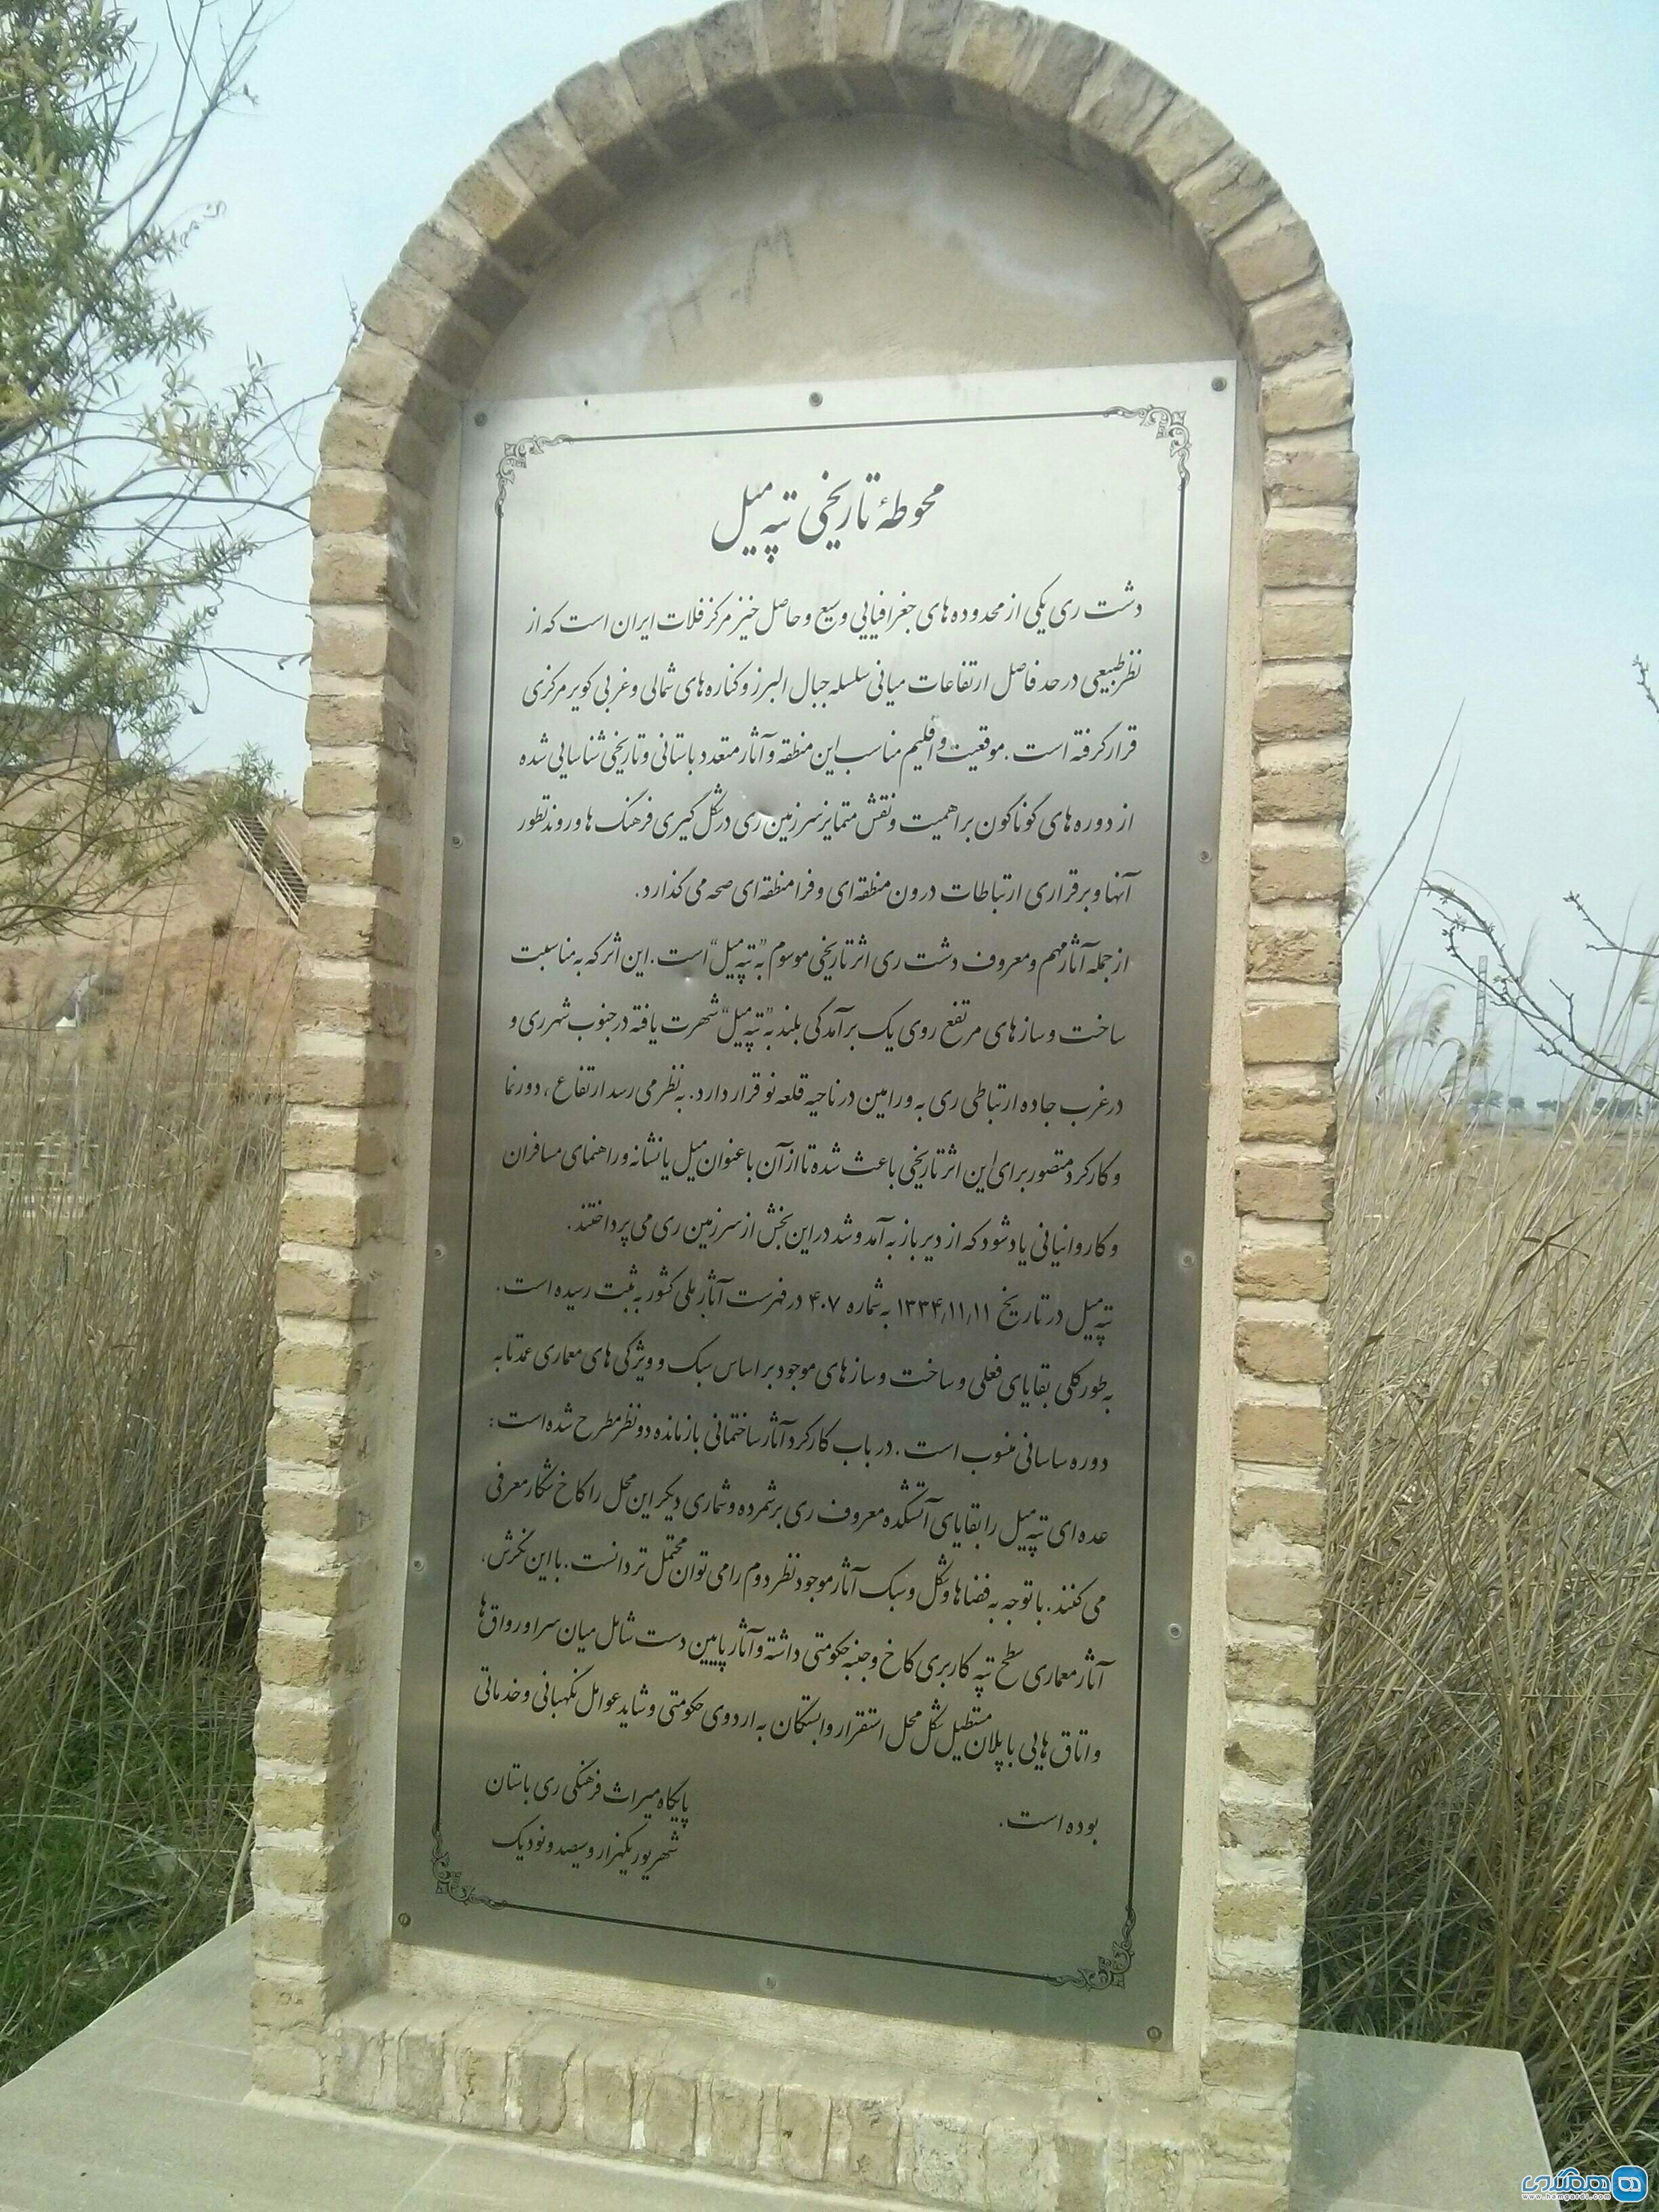 محوطهٔ تاریخی تپه میل
دشت ری یکی از محدوده های جغرافیایی وسیع و حاصل خیز مرکز فلات ایران است که از
نظر طبیعی در حد فاصل ارتفاعات میانی سلسله جبال البرز و کناره های شمالی و غربی کویر مرکزی
قرار گرفته است. موقعیت و اقلیم مناسب این منطقه و آثار متعدد باستانی و تاریخی شناسایی شده
از دوره های گوناگون بر اهمیت و نقش متمایز سرزمین ری در شکل گیری فرهنگ ها و روند تطور
آنها و برقراری ارتباطات درون منطقه ای و فرا منطقه ای صحه می گذارد.
از جمله آثار مهم و معروف دشت ری اثر تاریخی موسوم به "تپه میل" است. این اثر که به مناسبت
ساخت و سازهای مرتفع روی یک برآمدگی بلند به "تپه میل" شهرت یافته در جنوب شهر ری و
در غرب جاده ارتباطی ری به ورامین در ناحیه قلعه نو قرار دارد. به نظر می رسد ارتفاع، دورنما
و کارکرد متصور برای این اثر تاریخی باعث شده تا از آن با عنوان میل یا نشانه و راهنمای مسافران
و کاروانیانی یاد شود که از دیرباز به آمد و شد در این بخش از سرزمین ری می پرداختند.
تپه میل در تاریخ ۱۳۳۴/۱۱/۱۱ به شماره ۴۰۷ در فهرست آثار ملی کشور به ثبت رسیده است.
به طور کلی بقایای فعلی و ساخت و سازهای موجود بر اساس سبک و ویژگی های معماری عمدتا به
دوره ساسانی منسوب است. در باب کارکرد آثار ساختمانی بازمانده دو نظر مطرح شده است:
عده ای تپه میل را بقایای آتشکده معروف ری برشمرده و شماری دیگر این محل را کاخ شکار معرفی
می کنند. با توجه به فضاها و شکل و سبک آثار موجود نظر دوم را می توان محتمل تر دانست. با این نگرش،
آثار معماری سطح تپه کاربری کاخ و جنبه حکومتی داشته و آثار پایین دست شامل میان سرا و رواق ها
و اتاق هایی با پلان مستطیل شکل محل استقرار وابستگان به اردوی حکومتی و شاید عوامل نگهبانی و خدماتی
بوده است.
پایگاه میراث فرهنگی ری باستان
شهریور یکهزار و سیصد و نود یک
www.hamgardi.com